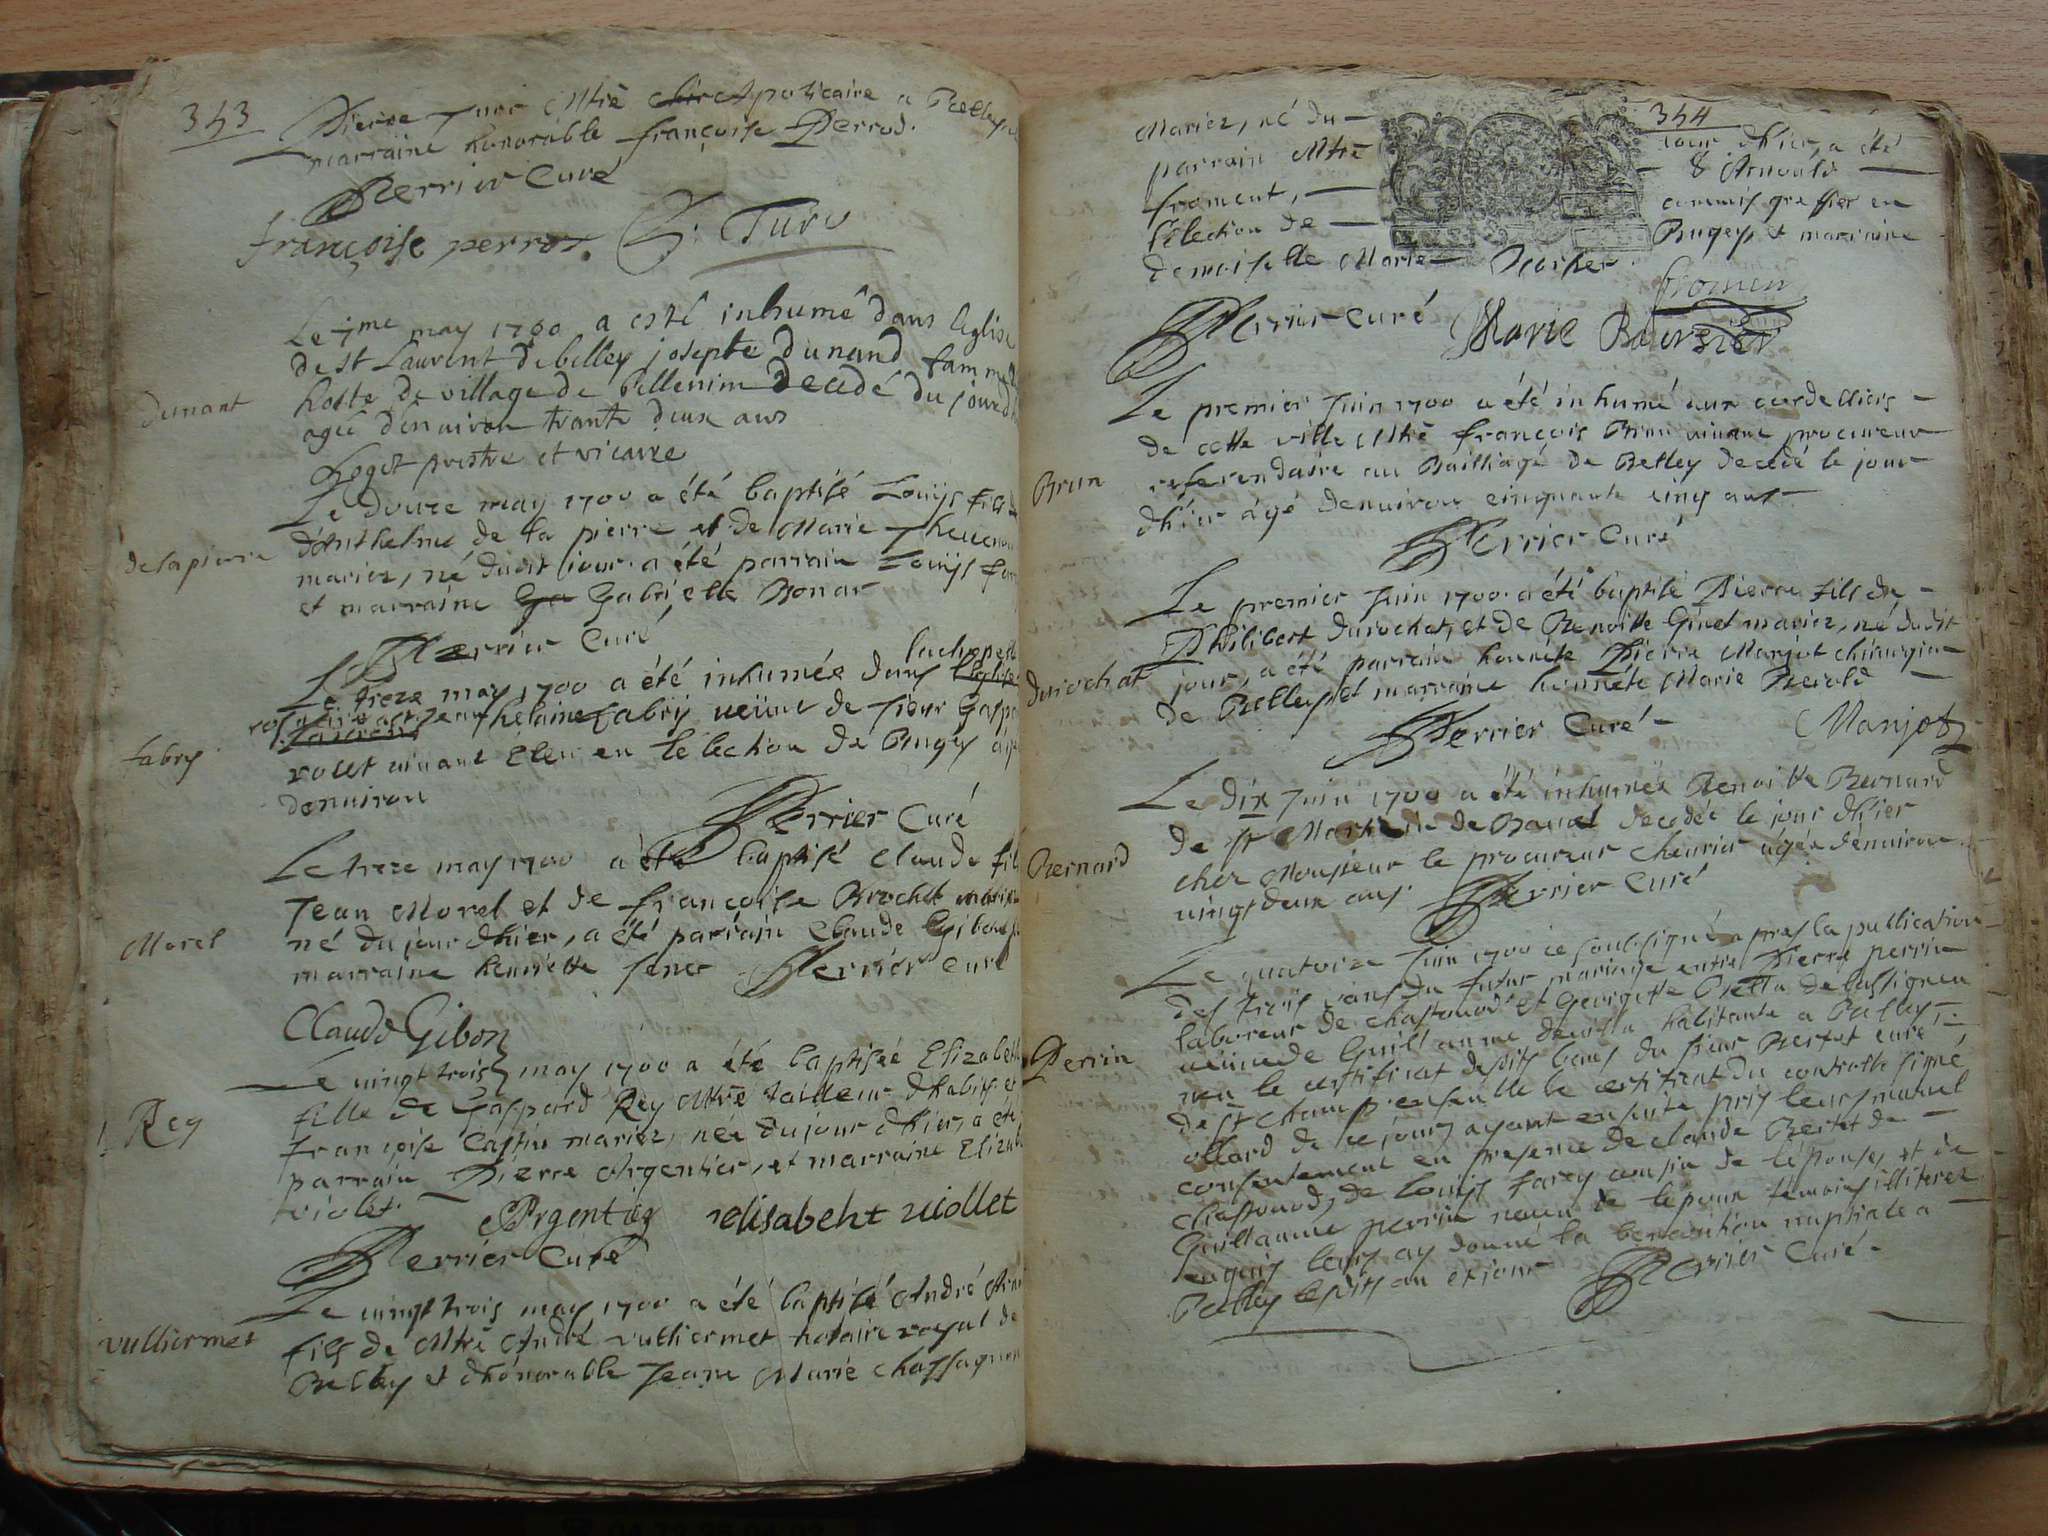 343
Pierre Turc Mtre Apoticaire a Belley
marraine honorable françoise Perrod.
Perrier Curé
françoise perrot. Turc
Le 7me may 1700 a esté inhumé dans leglise
de st Laurent de belley josephte dunand famme
hoste de village de decedé du jour
agée denuiron trante deux ans
dunant
prestre et vicaire
Le douze may 1700 a été baptisé Louijs fils
d'Anthelme de la pierre et de Marie Theuenon
delapierre
mariez, né dudit jour a été parrain Louijs
et marraine Ga Gabrielle Bonar
Perrier Curé
lachapelle
Le treze may 1700 a été inhumée dans leglise
helaine fabry ueüue de sieur Gaspa
fabry
uiuant Eleu en lelection de Bugey
denuiron
Perrier Curé
Le treze may 1700 a été baptisé Claude fils
Jean Morel et de françoise Brochet mariez
né du jour dhier, a été parrain Claude Gibon
Morel
marraine henriette Perrier Curé
Claude Gibon
Le uingt trois may 1700 a été baptisée Elizabeth
fille de Gaspard Rey Mtre tailleur dhabits et
Rey
françoise mariez, née du jour dhier, a été
parrain Pierre Argentier, et marraine Elizab
violet.
Argentier elisabeht uiollet
Perrier Curé
Le uingt trois may 1700 a été baptisé André
fils de Mtre André vulliermet notaire royal de
vulliermet
Belley et dhonorable Jeane Marie Chassagnon
344
Mariez, né du jour dhier, a été
parrain Mtre Arnould
froment, commis greffier en
lelection de Bugey, et marraine
demoiselle Marie
froment
Perrier Curé Marie Boursier
Le premier Juin 1700 a été inhumé aux cordelliers
de cette ville Mtre françois Brun uiuant procureur
Brun
referendaire au Bailliage de Belley decedé le jour
dhier agé denuiron cinquante cinq ans
Perrier Curé
Le premier Juin 1700 a été baptisé Pierre fils de
Philibert durochat, et de Benoitte Ginet mariez, né dudit
jour, a été parrain honnete Pierre Manjot chirurgien
durochat
de Belley et marraine honnete Marie
Perrier Curé Manjot
Le dix Juin 1700 a été inhumée Benoitte Bernard
de st Martin de Bauel decedée le jour dhier
Bernard
chez Monsieur le procureur cheurier agée denuiron
uingt deux ans. Perrier Curé
Le quatorze Juin 1700 ie soubsigné apres la publication
des trois bans du futur mariage entre Pierre perrin
laboreur de et Georgette Bella de
ueüue de Guillaume habitante a Belley
Perrin
ueu le certificat desdits bans du sieur Bertet curé
de st champ ensemble le certificat du controlle signé
ollard de ce jour, ayant ensuite pris leurs mutuel
consentement en presence de claude Bertet de
de Louijs farey cousin de lépouse, et de
Guillaume perrin neueu de lépoux témoins illiterez
requis leurs ay donné la benediction nuptiale a
Belley lesdits an et jour Perrier Curé